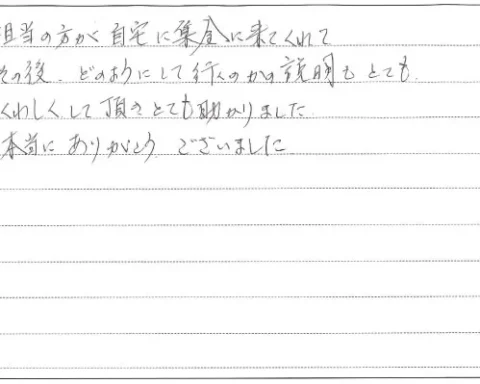 担当の方が自宅に集金に来てくれて
その後、どのようにして行くのかの説明もとても
くわしくして頂きとても助かりました
本当にありがとうございました